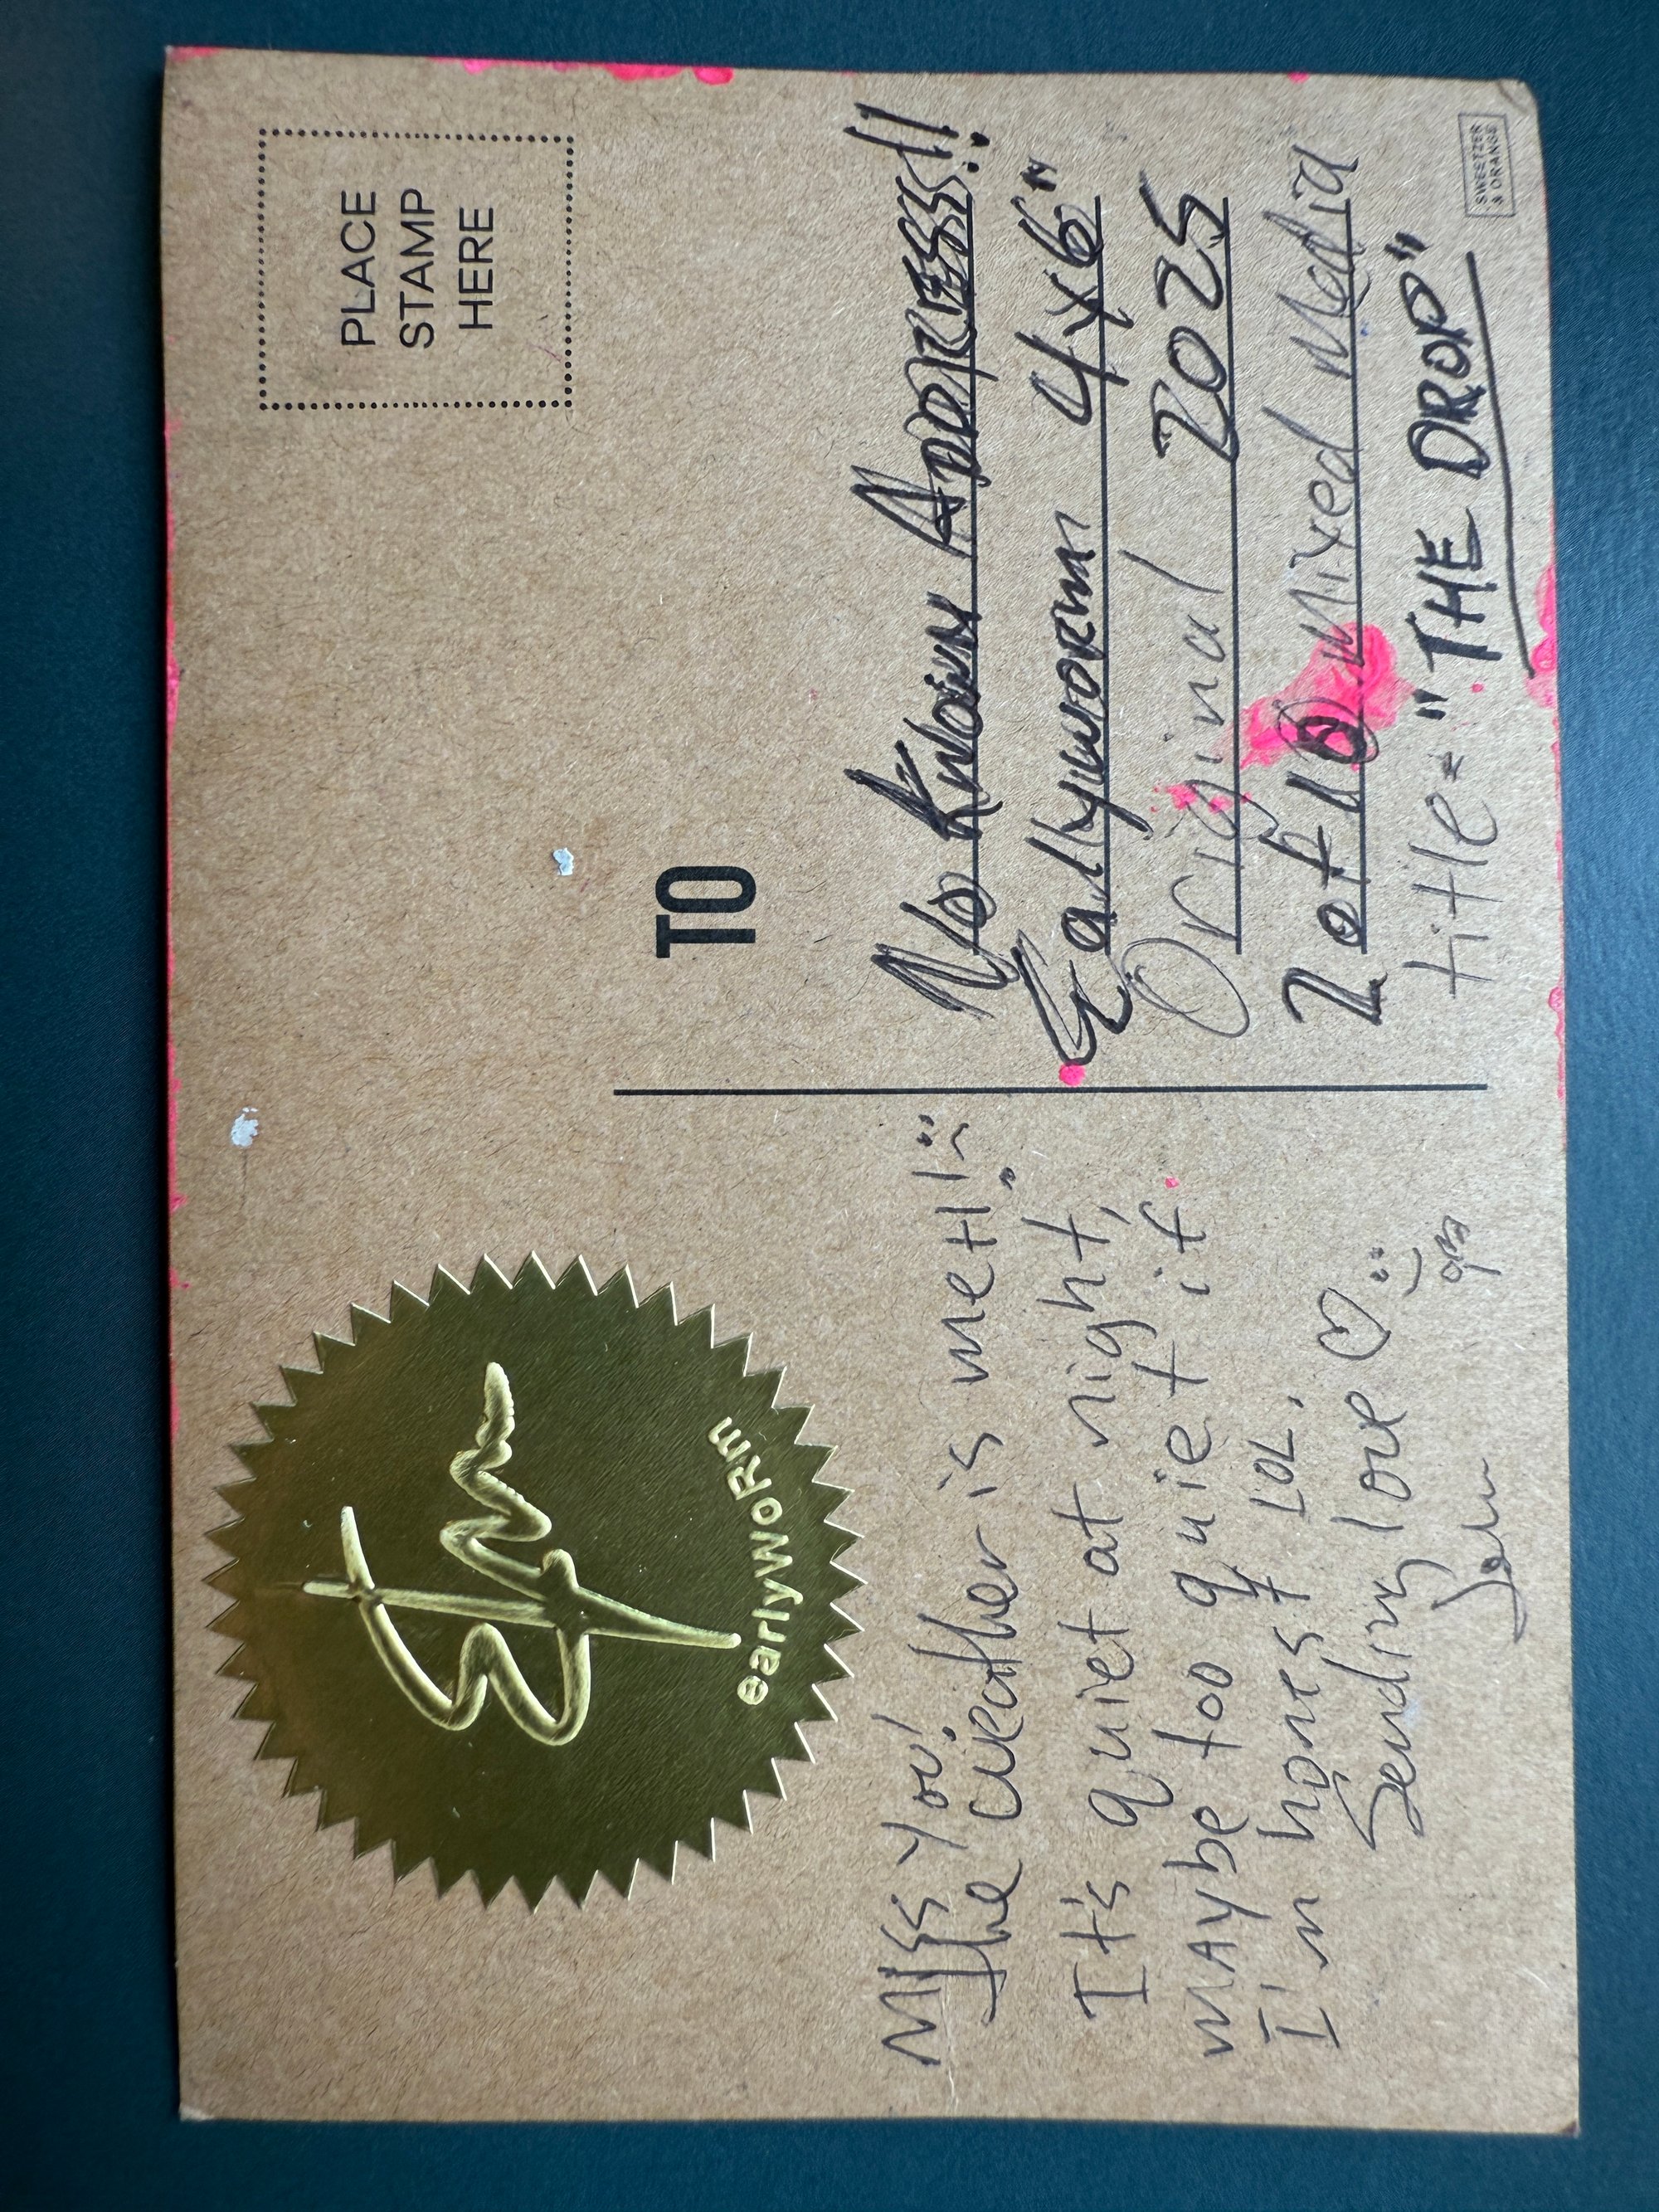 PLACE
STAMP
HERE
earlyWoRm
TO
MISS YOU!
The weather is meh!
It's quiet at night,
MAYbe too quiet if
I'm honest LOL.
Sending love ♡
No Known ADDRESS!!
Earlyworm 4x6"
Original 2025
2 of 10 Mixed Media
title = "THE DROP"
SWEETZER
& ORANGE